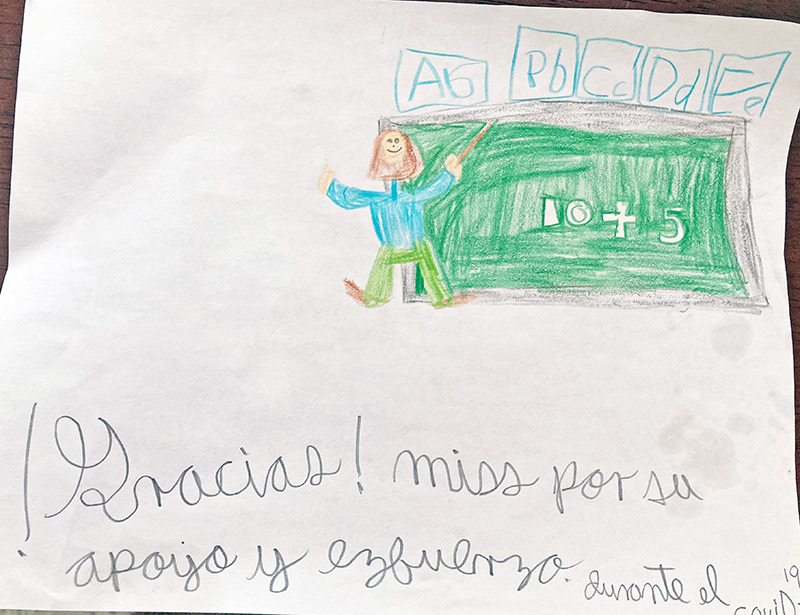 Aa Bb Cc Dd Ee
10+5
¡Gracias! miss por su
apoyo y ezfuerzo. durante el
coviD 19